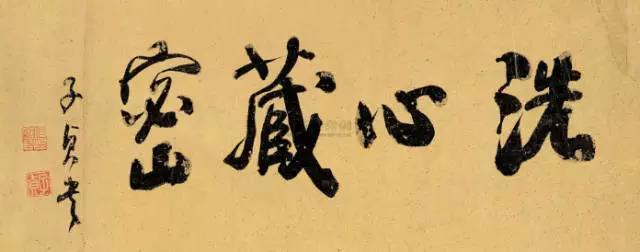 洗心藏密
子貞書